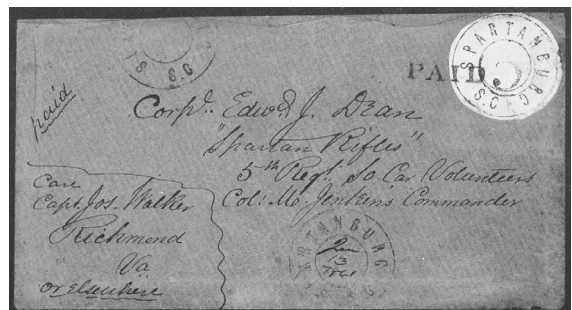 S S.C
SPARTANBURG
S.C.
5
PAID
paid
Corpl. Edwd. J. Dean
"Spartan Rifles"
5th Regt. So Car. Volunteers
Col: M. Jenkins Commander
Care
Capt. Jos. Walker
Richmond
Va
or elsewhere
SPARTANBURG
13
1861